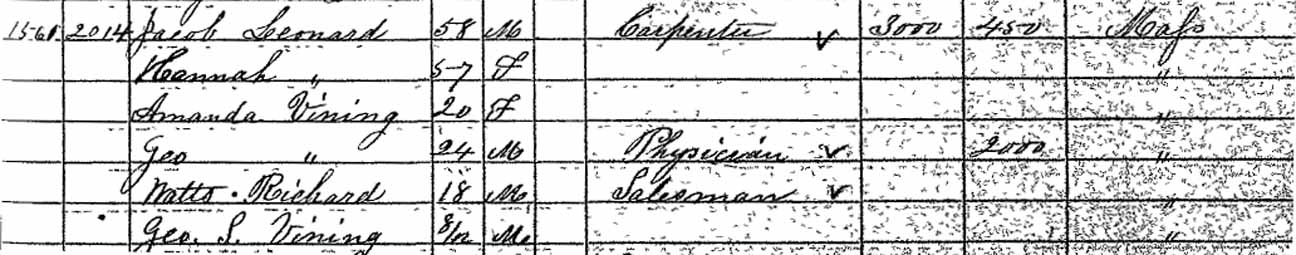 1561 2014 Jacob Leonard 58 M Carpenter ✓ 3000 450 Mass
Hannah " 57 F "
Amanda Vining 20 F "
Geo " 24 M Physician ✓ 2000 "
Watts. Richard 18 M Salesman ✓ "
Geo. S. Vining 8/12 M "